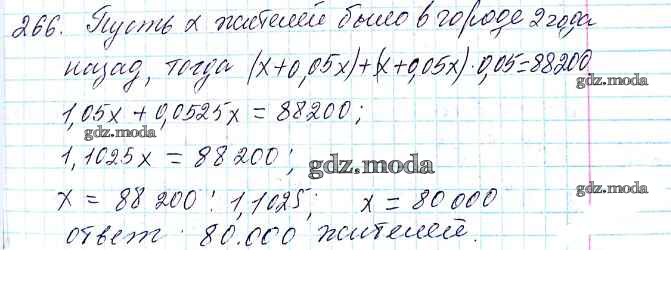 266. Пусть x жителей было в городе 2 года
назад, тогда (x+0,05x)+(x+0,05x)·0,05=88200
gdz.moda
1,05x + 0,0525x = 88200;
gdz.moda
1,1025x = 88200;
gdz.moda
gdz.moda
x = 88 200 : 1,1025; x = 80 000
ответ: 80.000 жителей.